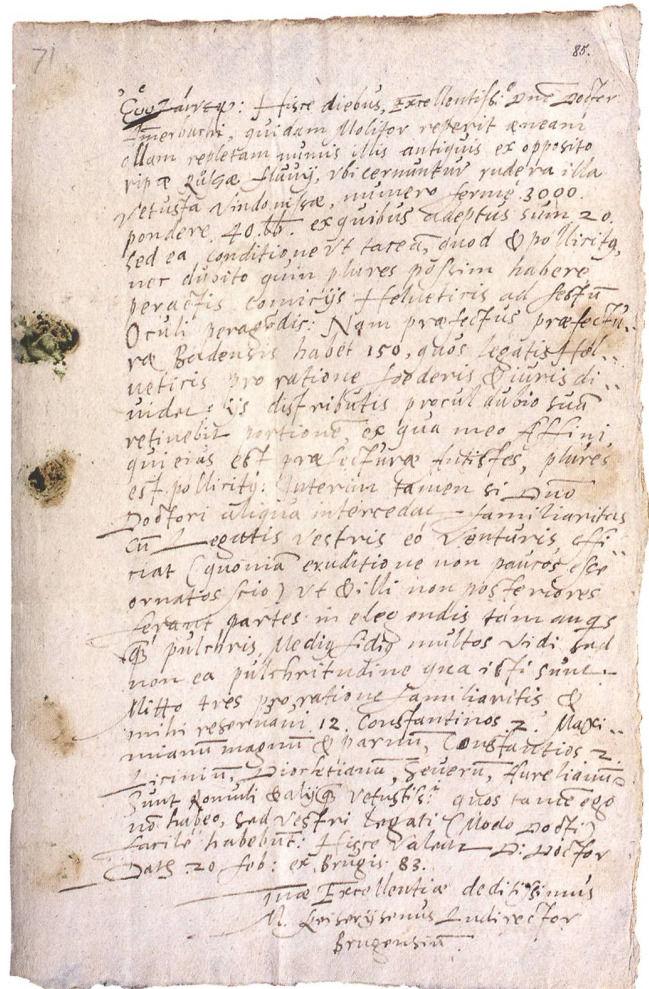 71
85.
Hisce diebus, Excellentiss: Dne Doctor
Amerbachi, quidam Molitor reperit æneam
ollam repletam numis illis antiquis ex opposito
ripæ Flauij, vbi cernuntur rudera illa
vetusta Vindonissæ, numero ferme 3000.
pondere 40. lb. ex quibus adeptus sum 20.
sed ea conditione vt taceā, quod & pollicitꝰ,
nec dubito quin plures possim habere
peractis comicijs Helueticis ad festū
Oculi peragēdis: Nam præfectus præfectu:
ræ Badensis habet 150, quos legatis Hel:
ueticis pro ratione foederis & iuris di:
uidet: ijs distributis procul dubio suā
retinebit portionē, ex qua meo Affini,
qui eius est præfecturæ Antistes, plures
est pollicitꝰ: Interim tamen si Dnō
Doctori aliqua intercedat familiaritas
cū Legatis vestris eò venturis effi:
ciat (quoniā eruditione non paucos esse
ornatos scio) vt & illi non posteriores
ferant partes in eligendis tam
pulchris, Mediꝰ fidiꝰ multos vidi, sed
non ea pulchritudine qua isti sunt.
Mitto tres pro ratione familiaritis &
mihi reseruaui 12. Constantinos 2. Maxi:
mianū magnū & parūū, Constantios 2
Licinium, Diocletianū, Seuerū, Aurelianū
Sunt Romuli & alij vetustiss: quos tamē ego
nō habeo, sed vestri legati (Modo Docti)
facilè habebūt: Hisce Valeat D: Doctor
Datæ 20 feb: ex Brugis 83.
Tuæ Excellentiæ deditissimus
Ludirector
Brugensiū